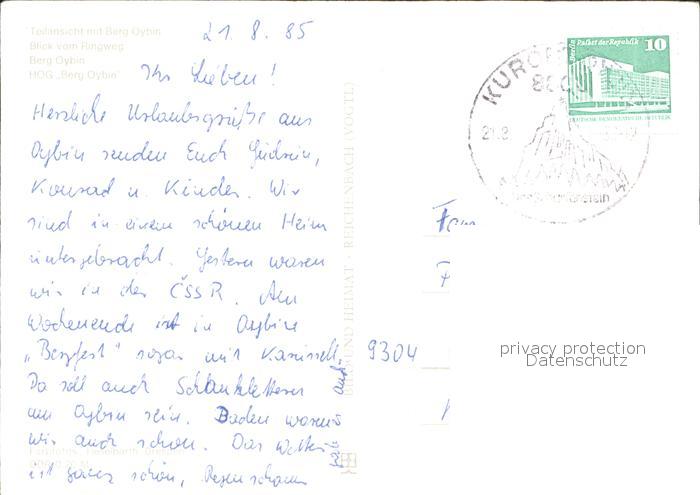 Teilansicht mit Berg Oybin
Blick vom Ringweg
Berg Oybin
HOG „Berg Oybin"
21. 8. 85
Ihr Lieben!
Herzliche Urlaubsgrüße aus
Oybin senden Euch
Konrad u. Kinder. Wir
sind in einem schönen Heim
untergebracht. Gestern waren
wir in der ČSSR. Am
Wochenende ist in Oybin
„Bergfest" sogar mit Karussell.
Da soll auch
am Oybin sein. Baden waren
wir auch schon. Das Wetter
ist ganz schön, Regenschauer
auch
BILD UND HEIMAT · REICHENBACH (VOGTL)
KURORT
21.8
Berlin, Palast der Republik
10
DEUTSCHE DEMOKRATISCHE REPUBLIK
Fam
9304
privacy protection
Datenschutz